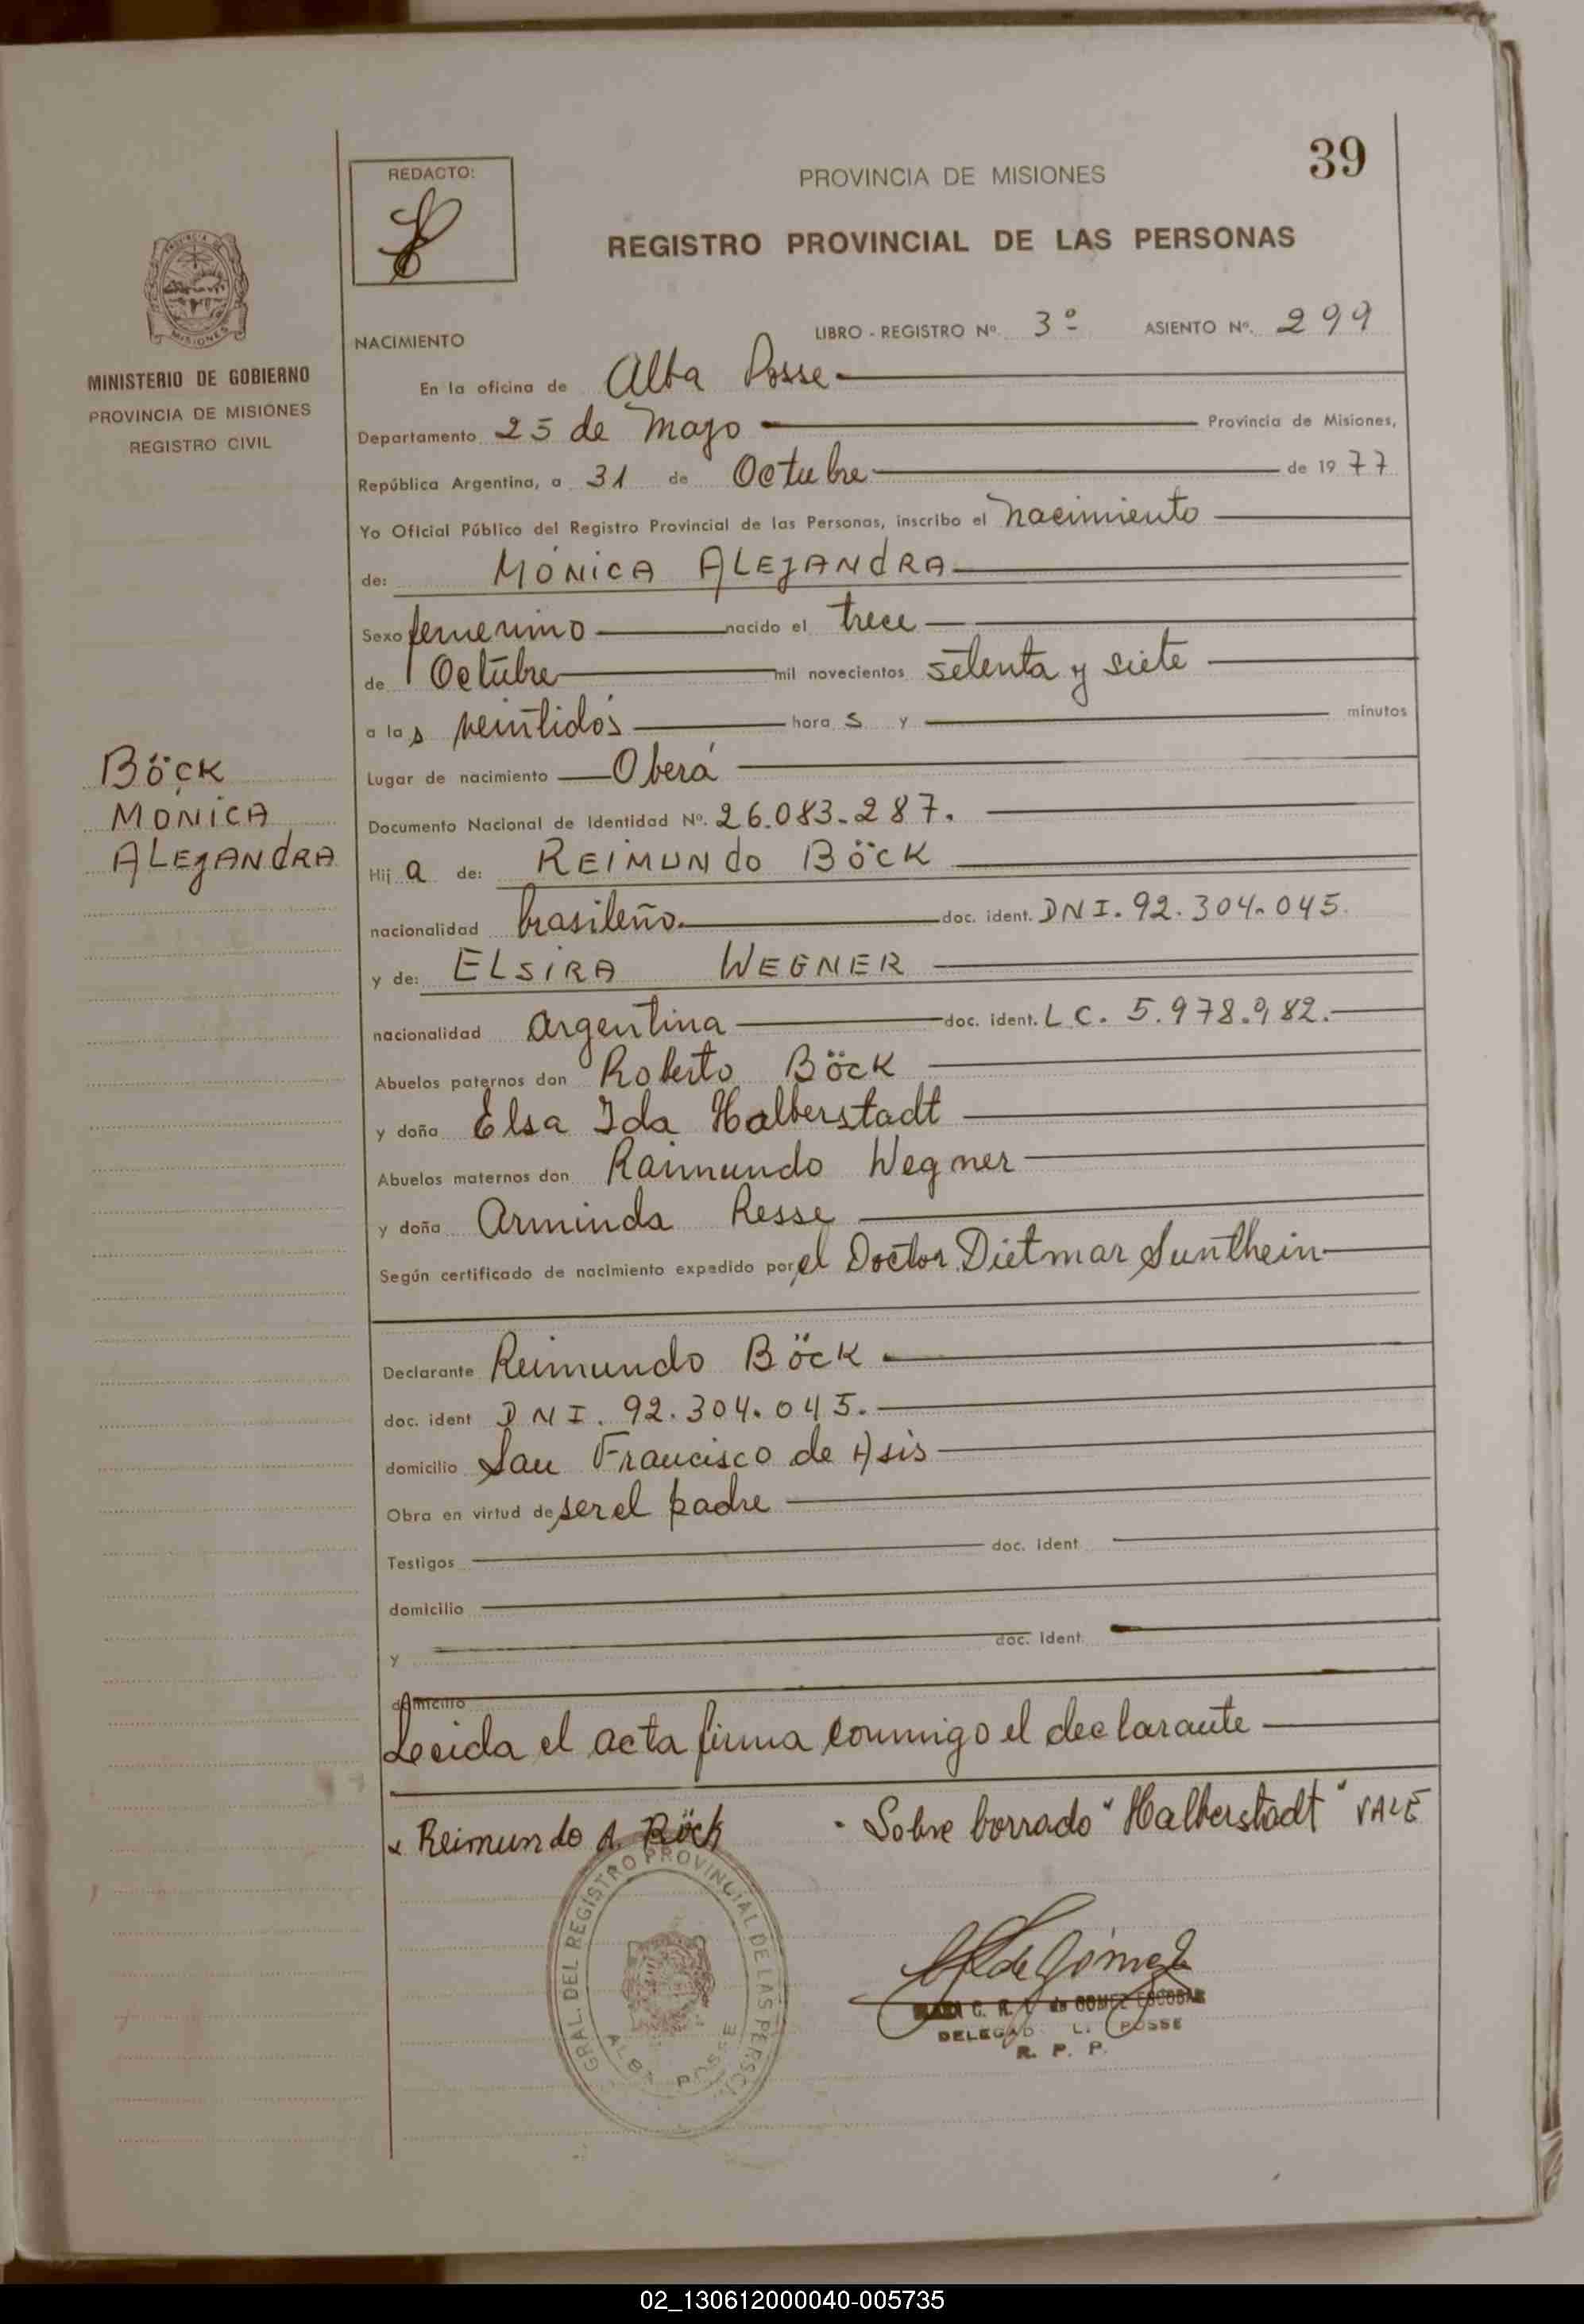 39
REDACTO:
PROVINCIA DE MISIONES
REGISTRO PROVINCIAL DE LAS PERSONAS
MISIONES
MINISTERIO DE GOBIERNO
PROVINCIA DE MISIONES
REGISTRO CIVIL
NACIMIENTO
LIBRO - REGISTRO Nº. 3º ASIENTO Nº. 299
En la oficina de Alba Posse
Departamento 25 de Mayo Provincia de Misiones,
República Argentina, a 31 de Octubre de 1977
Yo Oficial Público del Registro Provincial de las Personas, inscribo el nacimiento
de: MÓNICA ALEJANDRA
Sexo femenino nacido el trece
de Octubre mil novecientos setenta y siete
a las veintidós horas y minutos
Lugar de nacimiento Oberá
Documento Nacional de Identidad Nº. 26.083.287.
Hija de: REIMUNDO BÖCK
nacionalidad brasileño. doc. ident. DNI. 92.304.045.
y de: ELSIRA WEGNER
nacionalidad argentina doc. ident. L.C. 5.978.982.
Abuelos paternos don Roberto Böck
y doña Elsa Ida Halberstadt
Abuelos maternos don Raimundo Wegner
y doña Arminda Resse
Según certificado de nacimiento expedido por el Doctor Dietmar Sunthein
BÖCK
MÓNICA
ALEJANDRA
Declarante Reimundo Böck
doc. ident DNI. 92.304.045.
domicilio San Francisco de Asis
Obra en virtud de ser el padre
Testigos doc. ident
domicilio
y doc. ident.
domicilio
Leeida el acta firma conmigo el declarante
x Reimundo A. Böck
- Sobre borrado "Halberstadt" VALE
GRAL. DEL REGISTRO PROVINCIAL DE LAS PERSO
ALBA POSSE
de Gómez
C. R. de GOMEZ ESCOBAR
DELEGAD L. POSSE
R. P. P.
02_130612000040-005735